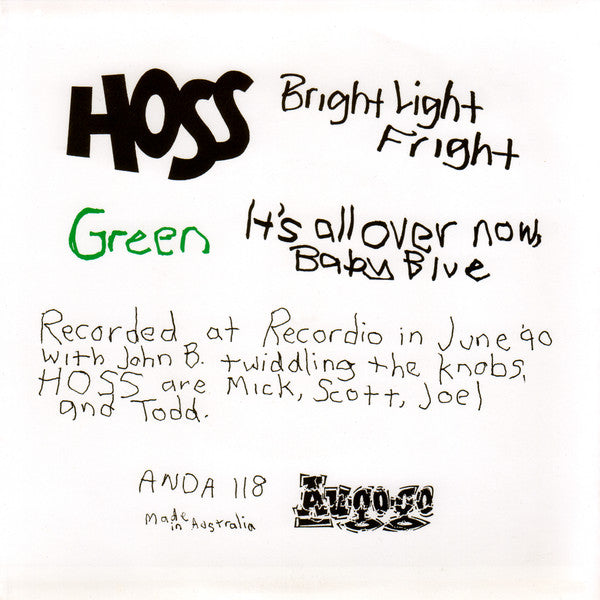 HOSS
Bright Light
Fright
Green
It's all over now,
Baby Blue
Recorded at Recordio in June '90
with John B. twiddling the knobs,
HOSS are Mick, Scott, Joel
and Todd.
ANDA 118
Made
in Australia
Augogo